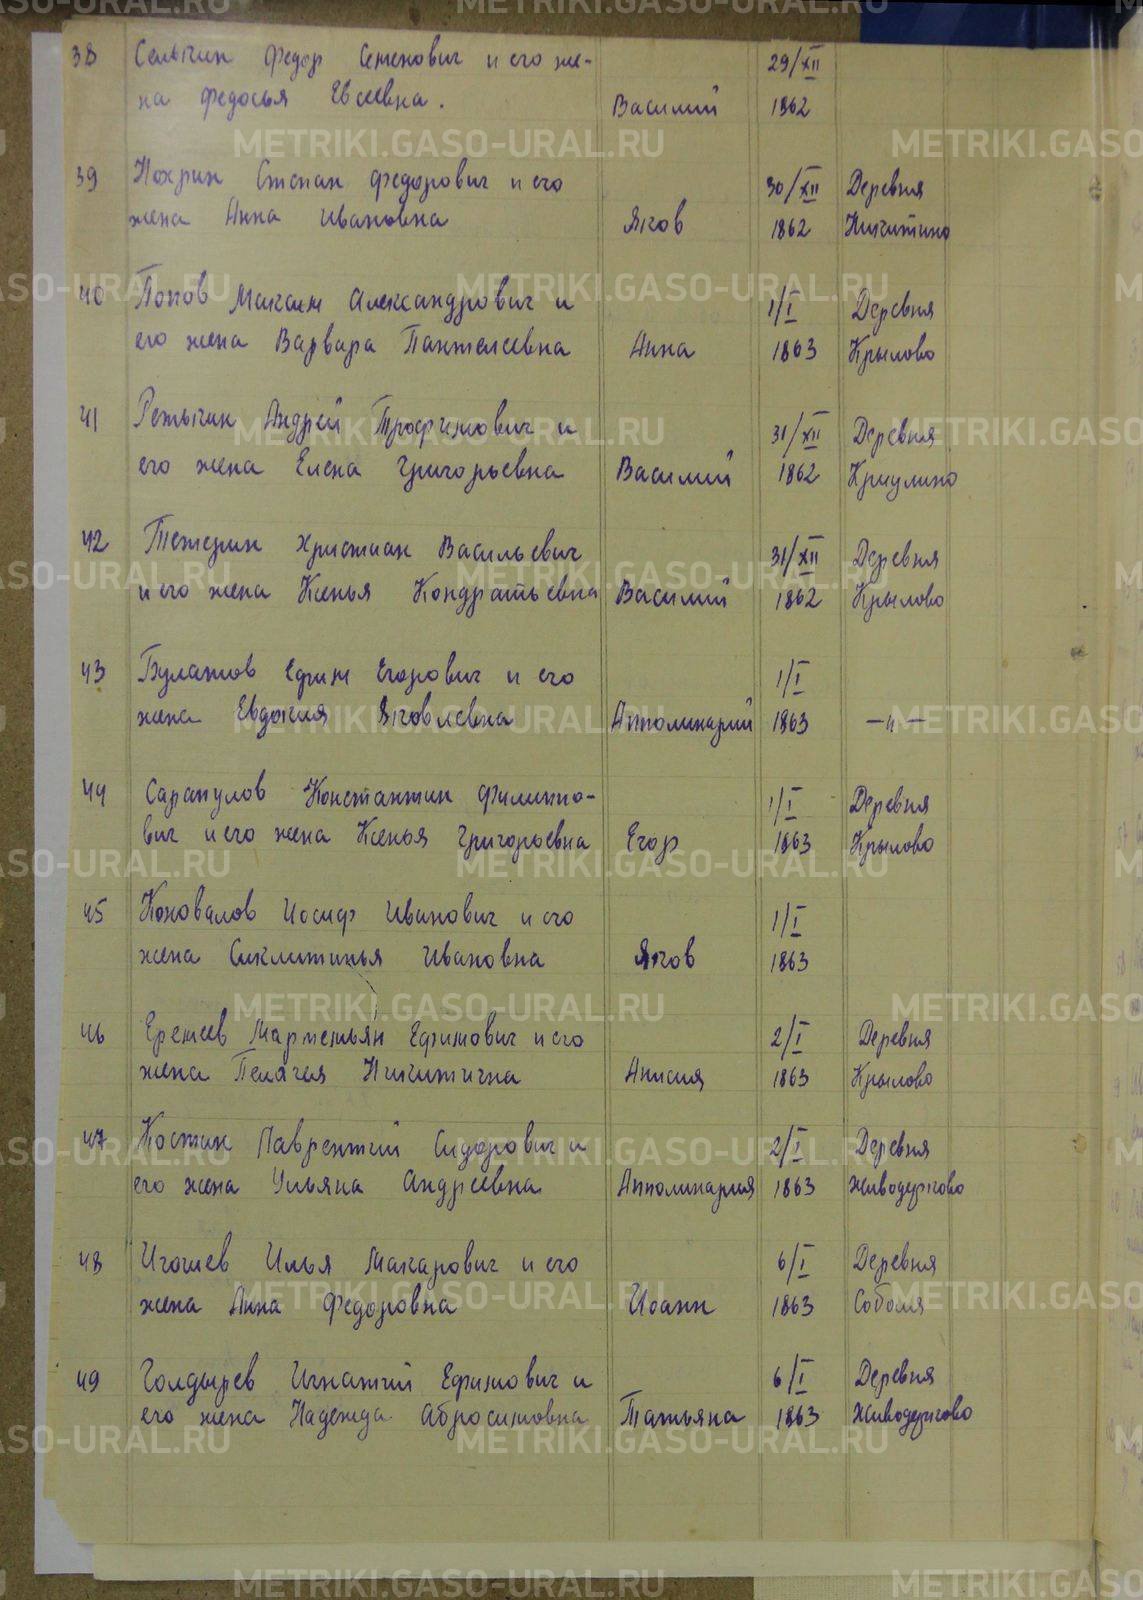 38 Селыгин Федор Семенович и его же- 29/XII
на Федосья Евсеевна. Василий 1862
39 Похрин Степан Федорович и его 30/XII Деревня
жена Анна Ивановна Яков 1862 Никитино
40 Попов Максим Александрович и 1/I Деревня
его жена Варвара Пантелеевна Анна 1863 Крылово
41 Андрей Трофимович и 31/XII Деревня
его жена Елена Григорьевна Василий 1862 Криулино
42 Тетерин Христиан Васильевич 31/XII Деревня
и его жена Ксенья Кондратьевна Василий 1862 Крылово
43 Булатов Ефим Егорович и его 1/I
жена Евдокия Яковлевна Апполинарий 1863 —"—
44 Сарапулов Константин Филиппо- 1/I Деревня
вич и его жена Ксенья Григорьевна Егор 1863 Крылово
45 Коновалов Иосиф Иванович и его 1/I
жена Сиклитинья Ивановна Яков 1863
46 Еремеев Мартемьян Ефимович и его 2/I Деревня
жена Пелагея Никитична Анисия 1863 Крылово
47 Костин Лаврентий Сидорович и 2/I Деревня
его жена Ульяна Андреевна Апполинария 1863 Живодерково
48 Игошев Илья Макарович и его 6/I Деревня
жена Анна Федоровна Иоанн 1863 Соболя
49 Голдырев Игнатий Ефимович и 6/I Деревня
его жена Надежда Абросимовна Татьяна 1863 Живодерково
METRIKI.GASO-URAL.RU